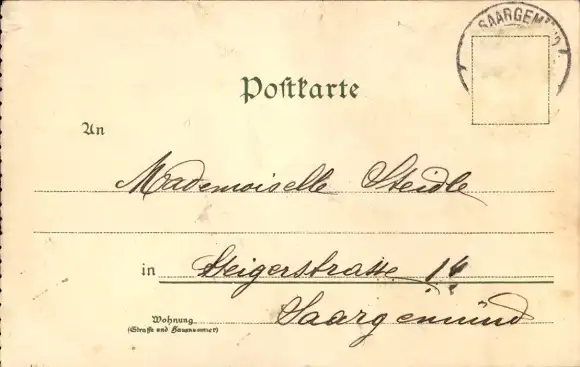 SAARGEMÜND
Postkarte
An
Mademoiselle Steidle
in Steigerstrasse 14
Wohnung
(Straße und Hausnummer)
Saargemünd